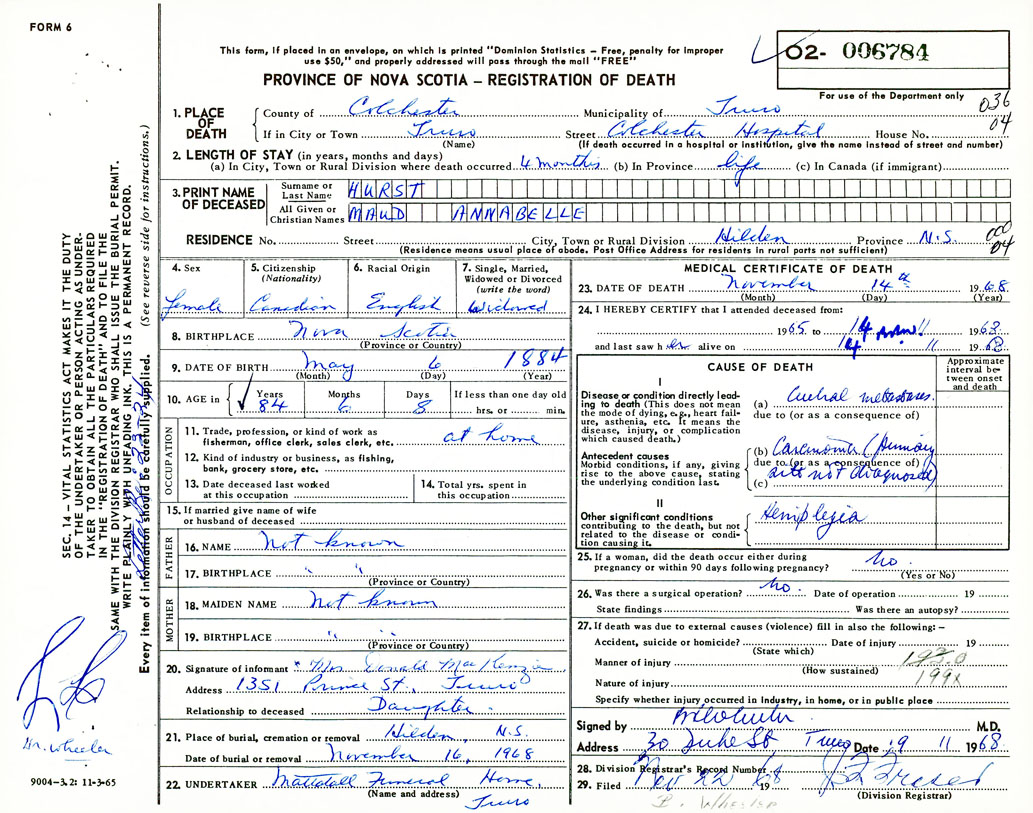 FORM 6
This form, if placed in an envelope, on which is printed "Dominion Statistics – Free, penalty for improper
use $50," and properly addressed will pass through the mail "FREE"
PROVINCE OF NOVA SCOTIA – REGISTRATION OF DEATH
O2- 006784
For use of the Department only
036
04
1. PLACE OF DEATH
County of Colchester Municipality of Truro
If in City or Town Truro Street Colchester Hospital House No.
(Name) (If death occurred in a hospital or institution, give the name instead of street and number)
2. LENGTH OF STAY (in years, months and days)
(a) In City, Town or Rural Division where death occurred 4 months (b) In Province life (c) In Canada (if immigrant)
3. PRINT NAME OF DECEASED
Surname or Last Name HURST
All Given or Christian Names MAUD ANNABELLE
RESIDENCE No. Street City, Town or Rural Division Hilden Province N.S.
(Residence means usual place of abode. Post Office Address for residents in rural parts not sufficient)
000
04
4. Sex
female
5. Citizenship
(Nationality)
Canadian
6. Racial Origin
English
7. Single, Married,
Widowed or Divorced
(write the word)
Widowed
8. BIRTHPLACE Nova Scotia
(Province or Country)
9. DATE OF BIRTH May 6 1884
(Month) (Day) (Year)
10. AGE in
Years Months Days If less than one day old
84 6 8 hrs. or min.
OCCUPATION
11. Trade, profession, or kind of work as
fisherman, office clerk, sales clerk, etc. at home
12. Kind of industry or business, as fishing,
bank, grocery store, etc.
13. Date deceased last worked
at this occupation
14. Total yrs. spent in
this occupation
15. If married give name of wife
or husband of deceased
FATHER
16. NAME Not known
17. BIRTHPLACE " "
(Province or Country)
MOTHER
18. MAIDEN NAME Not known
19. BIRTHPLACE " "
(Province or Country)
20. Signature of informant Mrs Donald MacKenzie
Address 1351 Prince St., Truro
Relationship to deceased Daughter
21. Place of burial, cremation or removal Hilden, N.S.
Date of burial or removal November 16, 1968
22. UNDERTAKER Mattatall Funeral Home,
(Name and address) Truro
MEDICAL CERTIFICATE OF DEATH
23. DATE OF DEATH November 14th 1968
(Month) (Day) (Year)
24. I HEREBY CERTIFY that I attended deceased from:
1965 to 14 11 1968
and last saw her alive on 14 11 1968
CAUSE OF DEATH
Approximate
interval be-
tween onset
and death
I
Disease or condition directly lead-
ing to death (This does not mean
the mode of dying, e.g., heart fail-
ure, asthenia, etc. It means the
disease, injury, or complication
which caused death.)
(a) Cerebral metastases.
due to (or as a consequence of)
Antecedent causes
Morbid conditions, if any, giving
rise to the above cause, stating
the underlying condition last.
(b) Carcinoma (Primary
due to (or as a consequence of)
(c) site not diagnosed)
II
Other significant conditions
contributing to the death, but not
related to the disease or condi-
tion causing it.
Hemiplegia
25. If a woman, did the death occur either during
pregnancy or within 90 days following pregnancy? No.
(Yes or No)
26. Was there a surgical operation? No. Date of operation 19
State findings Was there an autopsy?
27. If death was due to external causes (violence) fill in also the following: –
Accident, suicide or homicide? Date of injury 19
(State which)
Manner of injury
(How sustained)
193.0
199X
Nature of injury
Specify whether injury occurred in industry, in home, or in public place
Signed by M.D.
Address 30 St Truro Date 19 11 1968
28. Division Registrar's Record Number
29. Filed Nov 22 1968
(Division Registrar)
SEC. 14 – VITAL STATISTICS ACT MAKES IT THE DUTY
OF THE UNDERTAKER OR PERSON ACTING AS UNDER-
TAKER TO OBTAIN ALL THE PARTICULARS REQUIRED
IN THE "REGISTRATION OF DEATH" AND TO FILE THE
SAME WITH THE DIVISION REGISTRAR WHO SHALL ISSUE THE BURIAL PERMIT.
WRITE PLAINLY WITH UNFADING INK. THIS IS A PERMANENT RECORD.
Every item of information should be carefully supplied. (See reverse side for instructions.)
Dr. Wheeler
9004–3.2: 11-3-65